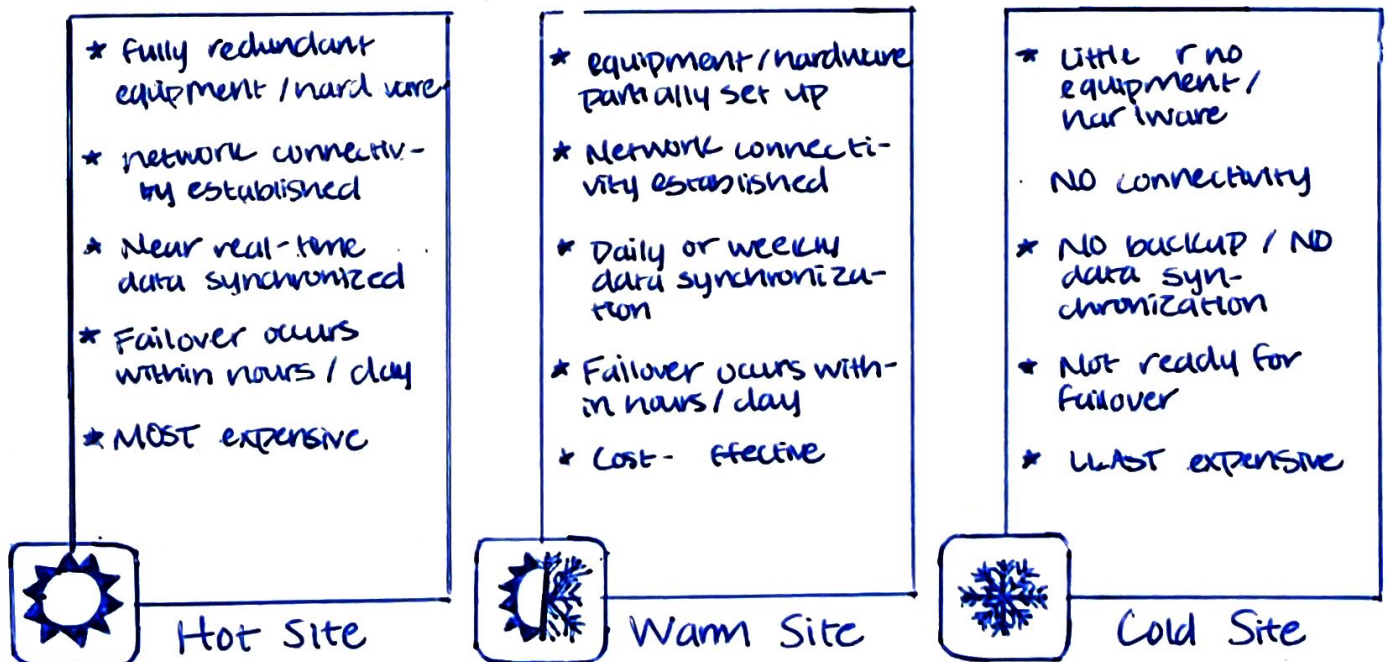 * Fully redundant
equipment / hard ware
* network connectiv-
ity established
* Near real-time
data synchronized
* Failover occurs
within hours / day
* MOST expensive
Hot Site
* equipment / hardware
partially set up
* Network connecti-
vity established
* Daily or weekly
data synchroniza-
tion
* Failover occurs with-
in hours / day
* Cost- ffective
Warm Site
* Little r no
equipment /
har ware
· NO connectivity
* NO backup / NO
data syn-
chronization
* Not ready for
failover
* LEAST expensive
Cold Site